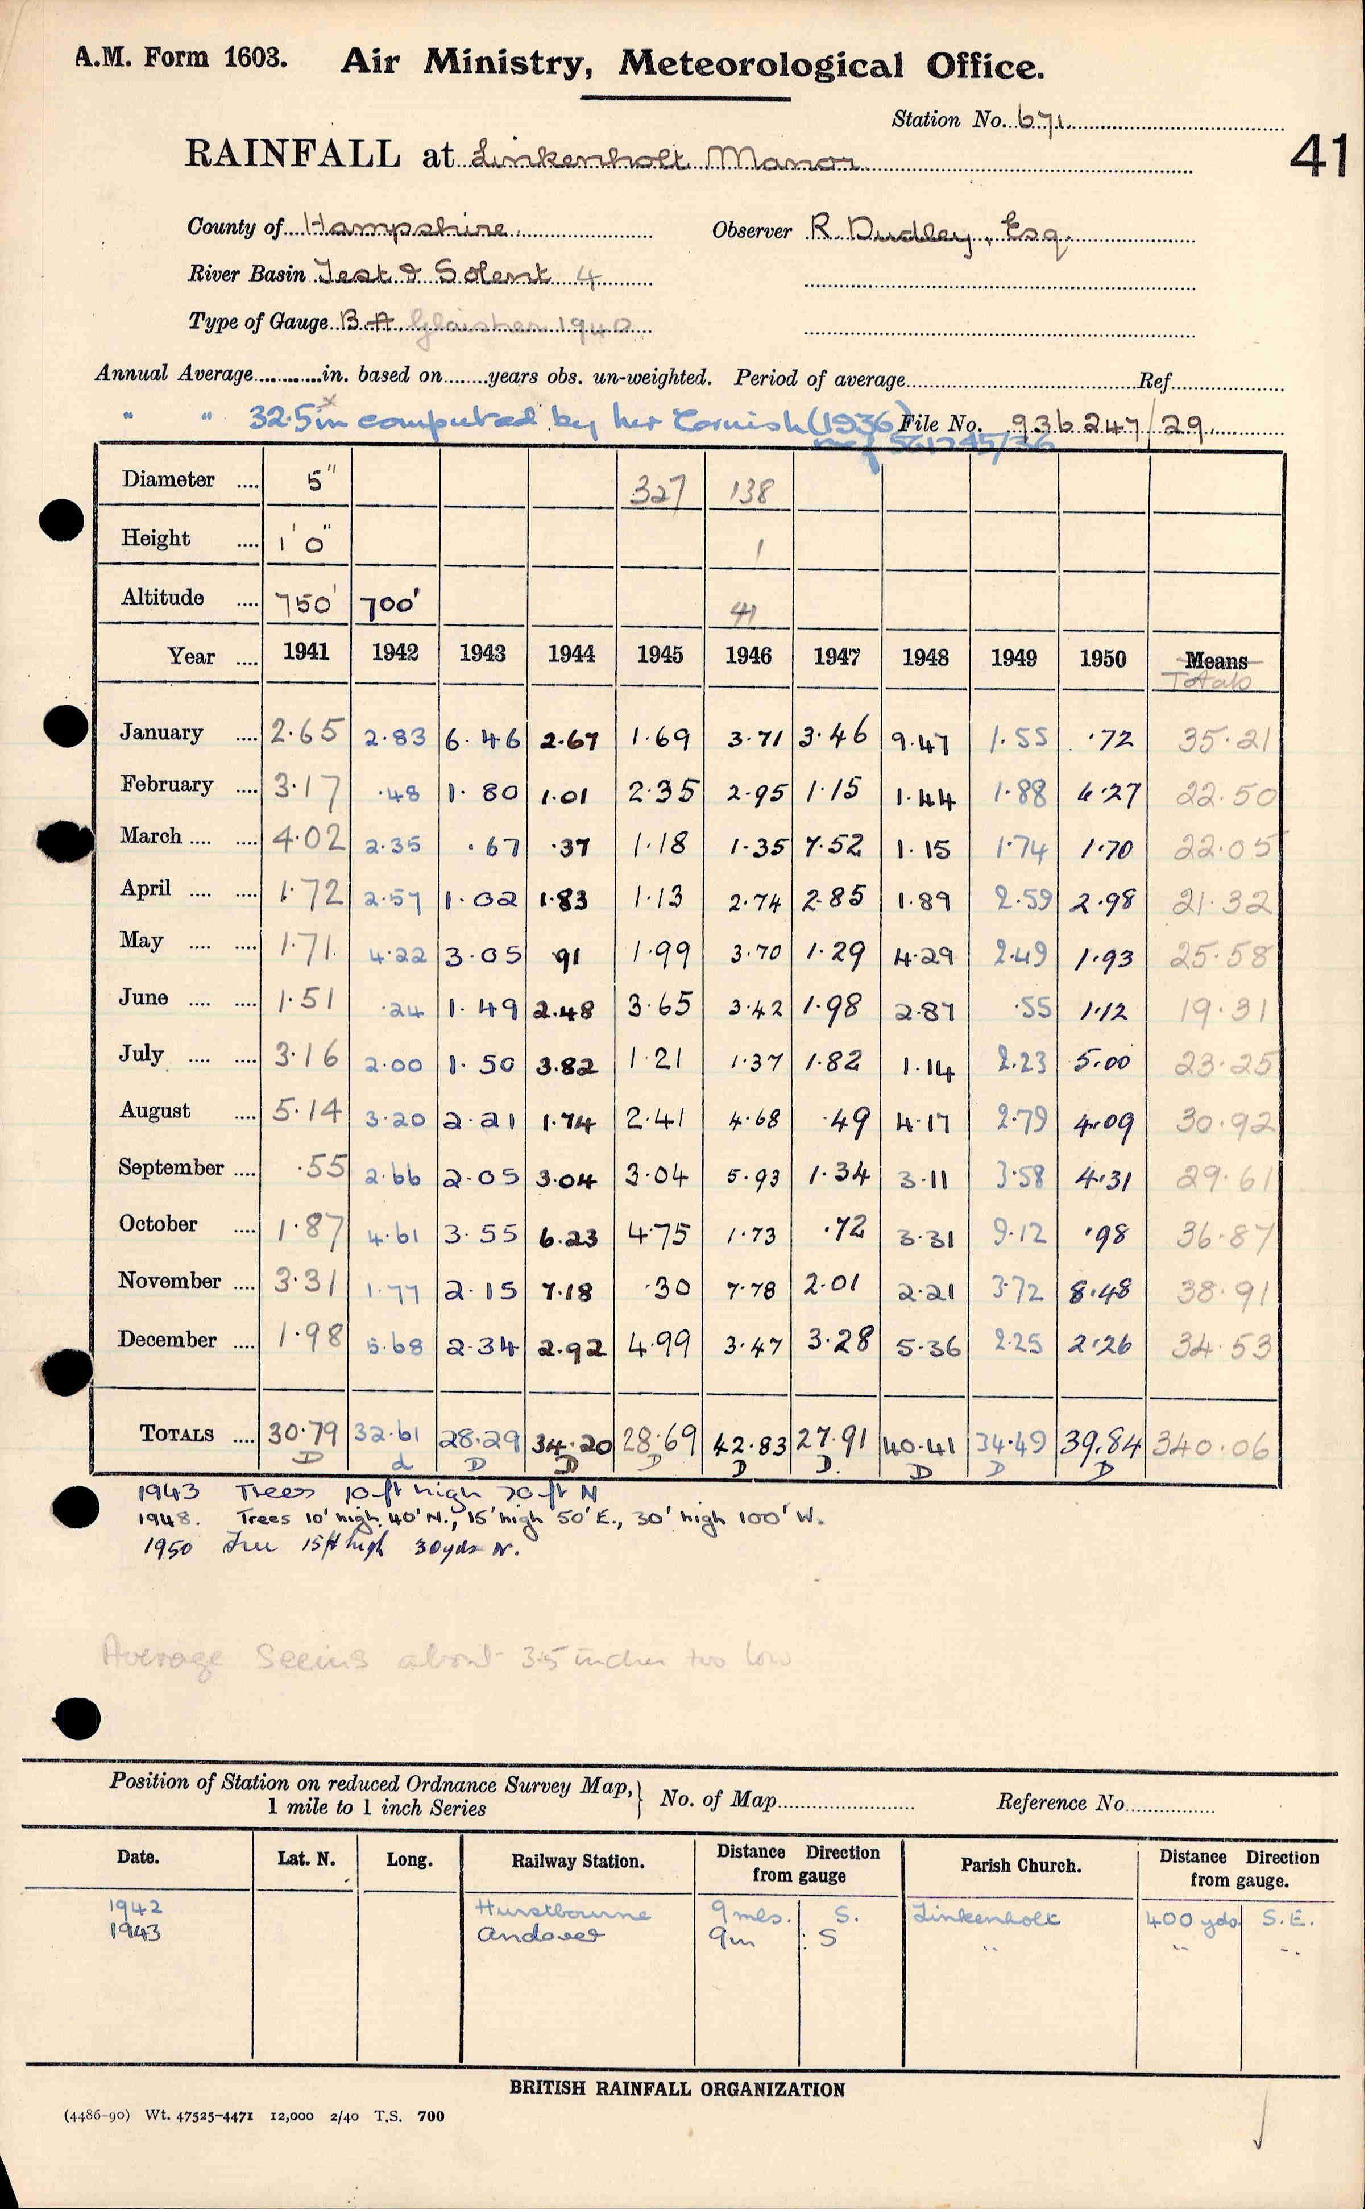 A.M. Form 1603. Air Ministry, Meteorological Office.
Station No. 671
41
RAINFALL at Linkenholt Manor
County of Hampshire Observer R. Dudley, Esq.
River Basin Test & Solent 4
Type of Gauge B.A. Glaisher 1940
Annual Average............in. based on........years obs. un-weighted. Period of average........Ref........
" " 32.5in computed by Mr Cornish (1936) File No. 936247/29
Diameter .... 5" 327 138
Height .... 1'0" 1
Altitude .... 750' 700' 41
Year .... 1941 1942 1943 1944 1945 1946 1947 1948 1949 1950 Means
Totals
January .... 2.65 2.83 6.46 2.67 1.69 3.71 3.46 9.47 1.55 .72 35.21
February .... 3.17 .48 1.80 1.01 2.35 2.95 1.15 1.44 1.88 6.27 22.50
March .... .... 4.02 2.35 .67 .37 1.18 1.35 7.52 1.15 1.74 1.70 22.05
April .... .... 1.72 2.57 1.02 1.83 1.13 2.74 2.85 1.89 2.59 2.98 21.32
May .... .... 1.71 4.22 3.05 .91 1.99 3.70 1.29 4.29 2.49 1.93 25.58
June .... .... 1.51 .24 1.49 2.48 3.65 3.42 1.98 2.87 .55 1.12 19.31
July .... .... 3.16 2.00 1.50 3.82 1.21 1.37 1.82 1.14 2.23 5.00 23.25
August .... 5.14 3.20 2.21 1.74 2.41 4.68 .49 4.17 2.79 4.09 30.92
September .... .55 2.66 2.05 3.04 3.04 5.93 1.34 3.11 3.58 4.31 29.61
October .... 1.87 4.61 3.55 6.23 4.75 1.73 .72 3.31 9.12 .98 36.87
November .... 3.31 1.77 2.15 7.18 .30 7.78 2.01 2.21 3.72 8.48 38.91
December .... 1.98 5.68 2.34 2.92 4.99 3.47 3.28 5.36 2.25 2.26 34.53
TOTALS .... 30.79 32.61 28.29 34.20 28.69 42.83 27.91 40.41 34.49 39.84 340.06
D d D D D D D. D D D
1943 Trees 10ft high 70ft N
1948. Trees 10' high 40' N., 15' high 50' E., 30' high 100' W.
1950 Tree 15ft high 30yds N.
Average seems about 3.5 inches too low
Position of Station on reduced Ordnance Survey Map,} No. of Map........ Reference No........
1 mile to 1 inch Series
Date. Lat. N. Long. Railway Station. Distance Direction from gauge Parish Church. Distance Direction from gauge.
1942 Hurstbourne 9 mls. S. Linkenholt 400 yds S.E.
1943 Andover 9m : S " " "
BRITISH RAINFALL ORGANIZATION
(4486-90) Wt. 47525-4471 12,000 2/40 T.S. 700